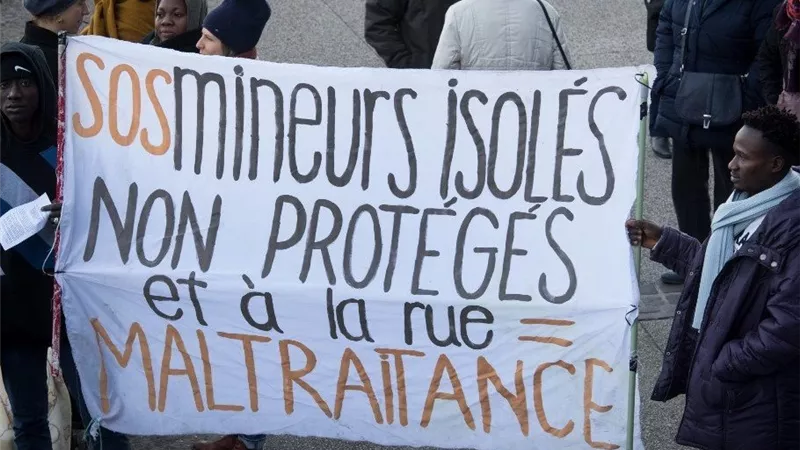 SOS mineurs isolés
NON PROTÉGÉS
et à la rue =
MALTRAITANCE